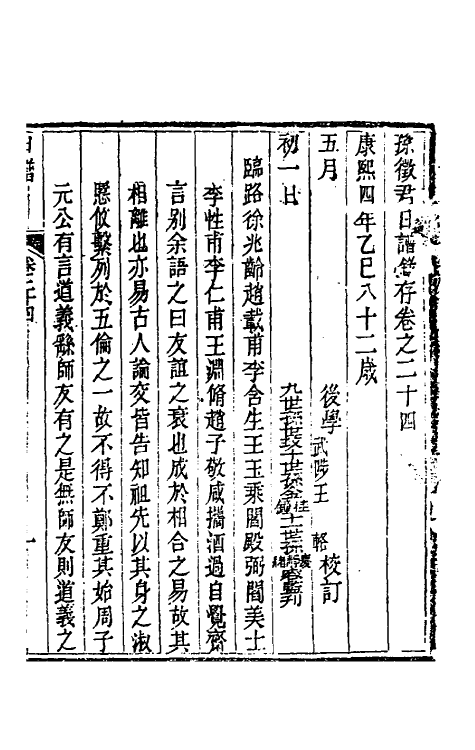 孫徵君日譜錄存卷之二十四
康熙四年乙巳八十二歲
後學武陟王輅校訂
五月
九世孫世玟十世孫
初一日
臨路徐兆齡趙載甫李含生王玉乘閻殿弼閻美士
李性甫李仁甫王淵脩趙子敬咸攜酒過自覺齋
言別余語之曰友誼之衰也成於相合之易故其
相離也亦易古人論交皆告知祖先以其身之淑
慝攸繫列於五倫之一故不得不鄭重其始周子
元公有言道義繇師友有之是無師友則道義之
日譜
卷二十四
一